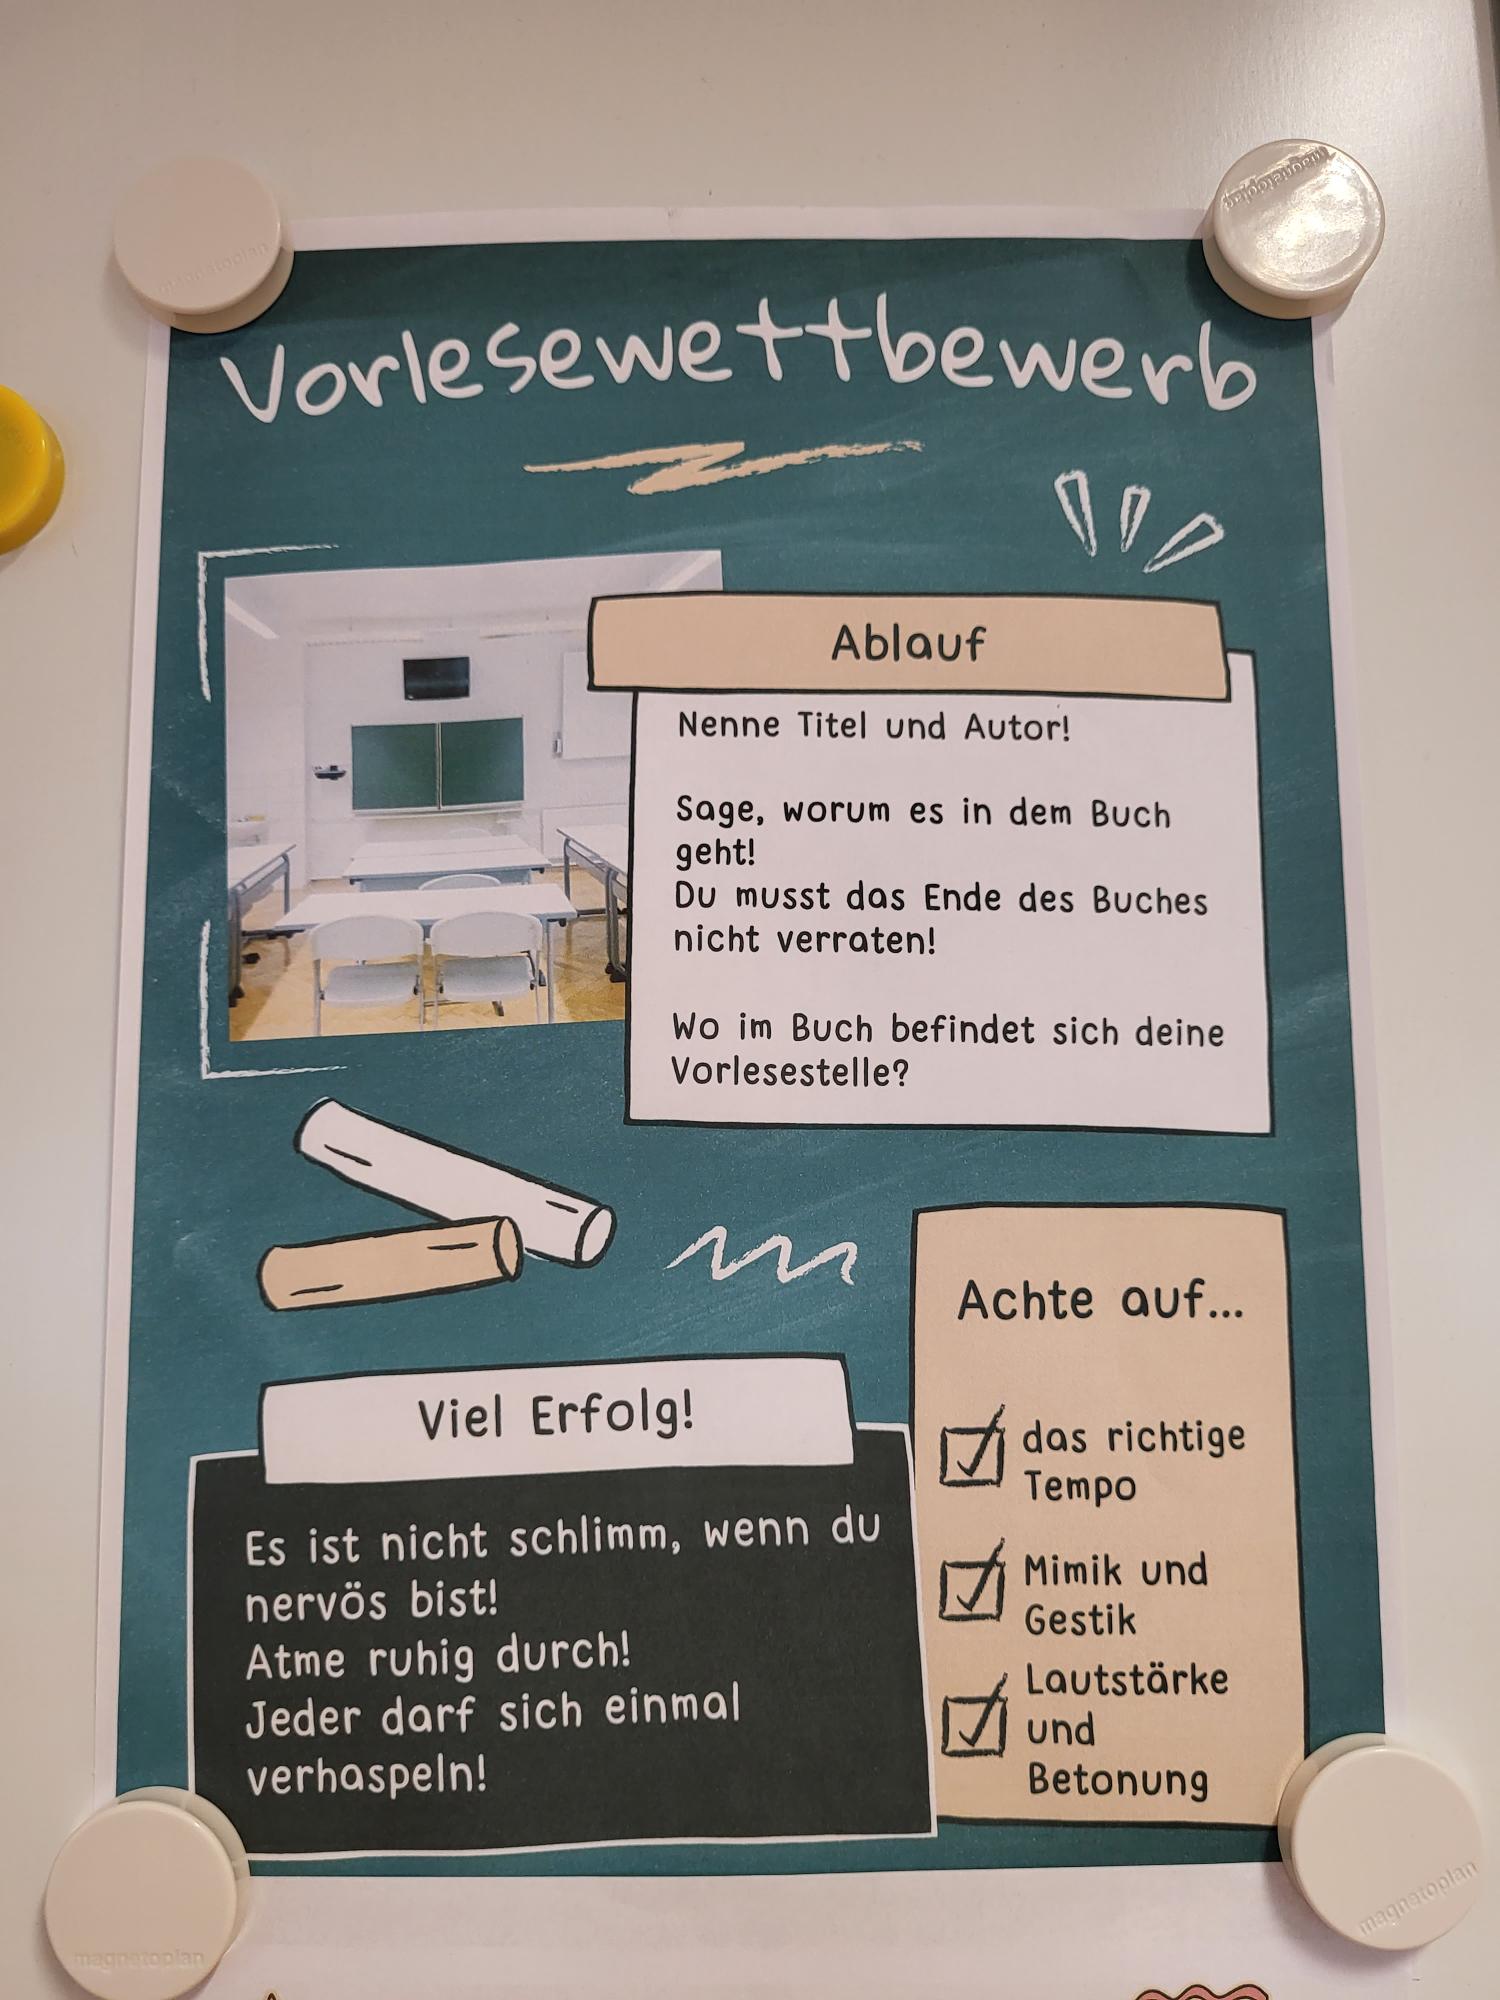 magnetoplan
magnetoplan
Vorlesewettbewerb
Ablauf
Nenne Titel und Autor!
Sage, worum es in dem Buch
geht!
Du musst das Ende des Buches
nicht verraten!
Wo im Buch befindet sich deine
Vorlesestelle?
Achte auf...
das richtige
Tempo
Mimik und
Gestik
Lautstärke
und
Betonung
Viel Erfolg!
Es ist nicht schlimm, wenn du
nervös bist!
Atme ruhig durch!
Jeder darf sich einmal
verhaspeln!
magnetoplan
magnetoplan